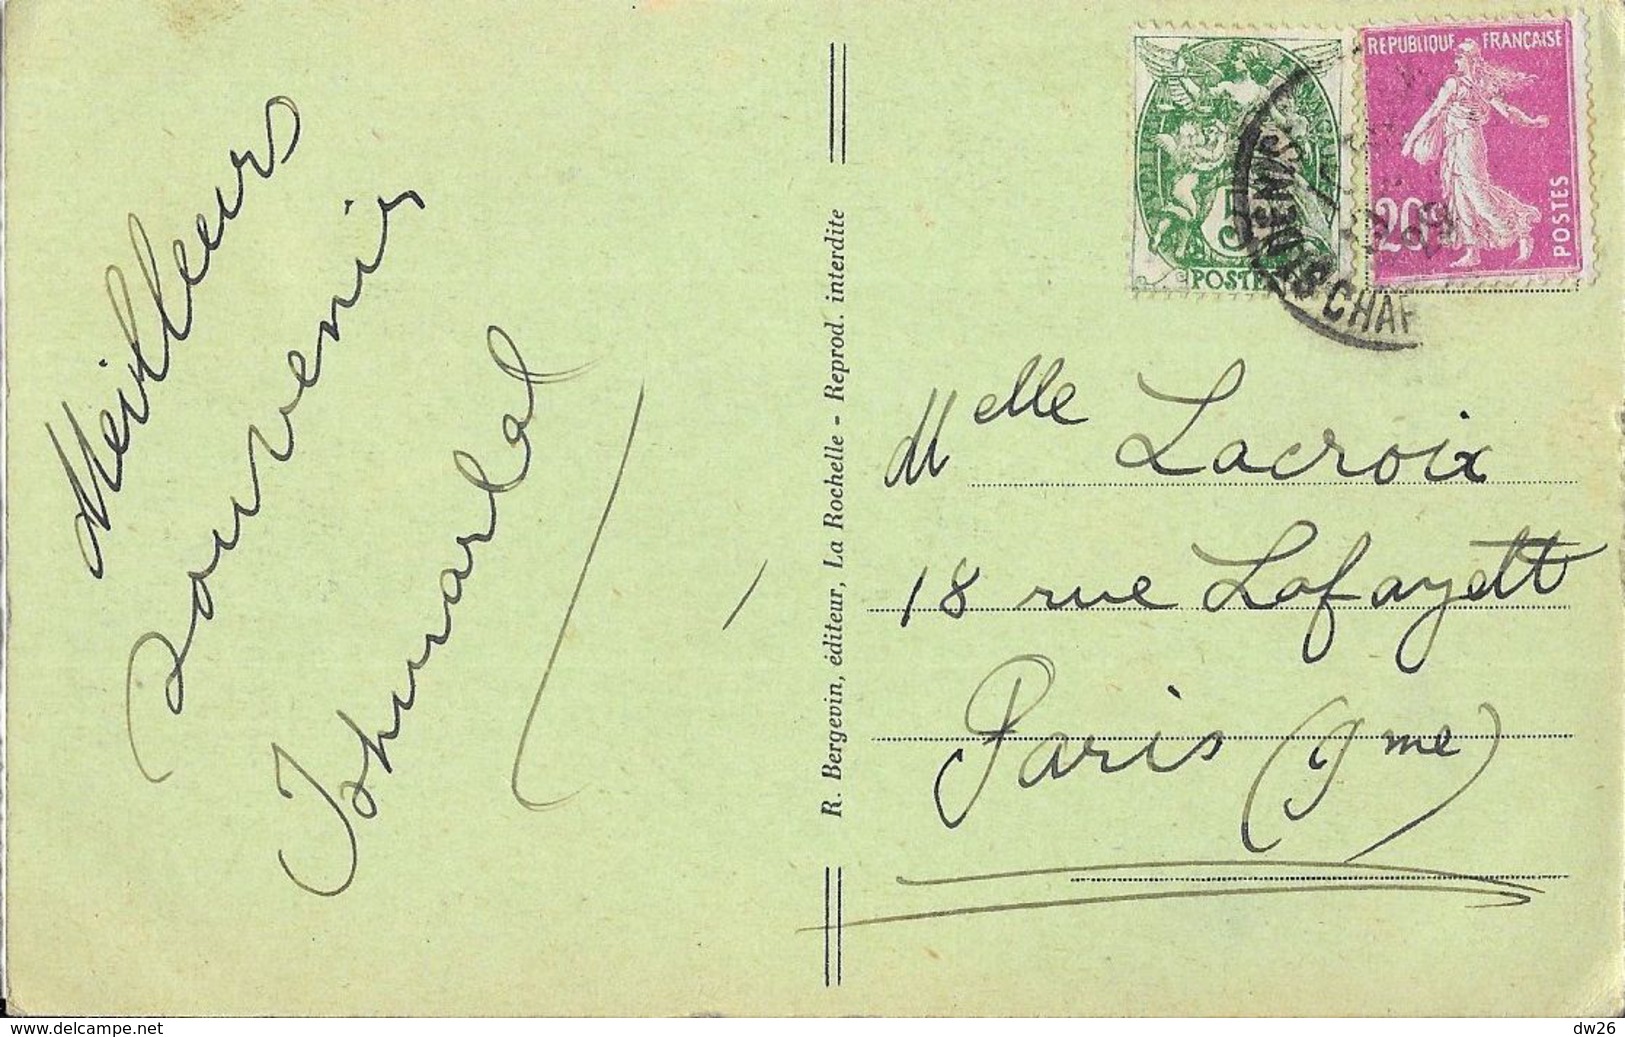 Meilleurs
souvenirs
R. Bergevin, éditeur, La Rochelle - Reprod. interdite
REPUBLIQUE FRANÇAISE
POSTES
20
5
POSTE
DENIS
CHAR
Melle Lacroix
18 rue Lafayett
Paris (9me)
www.delcampe.net
dw26